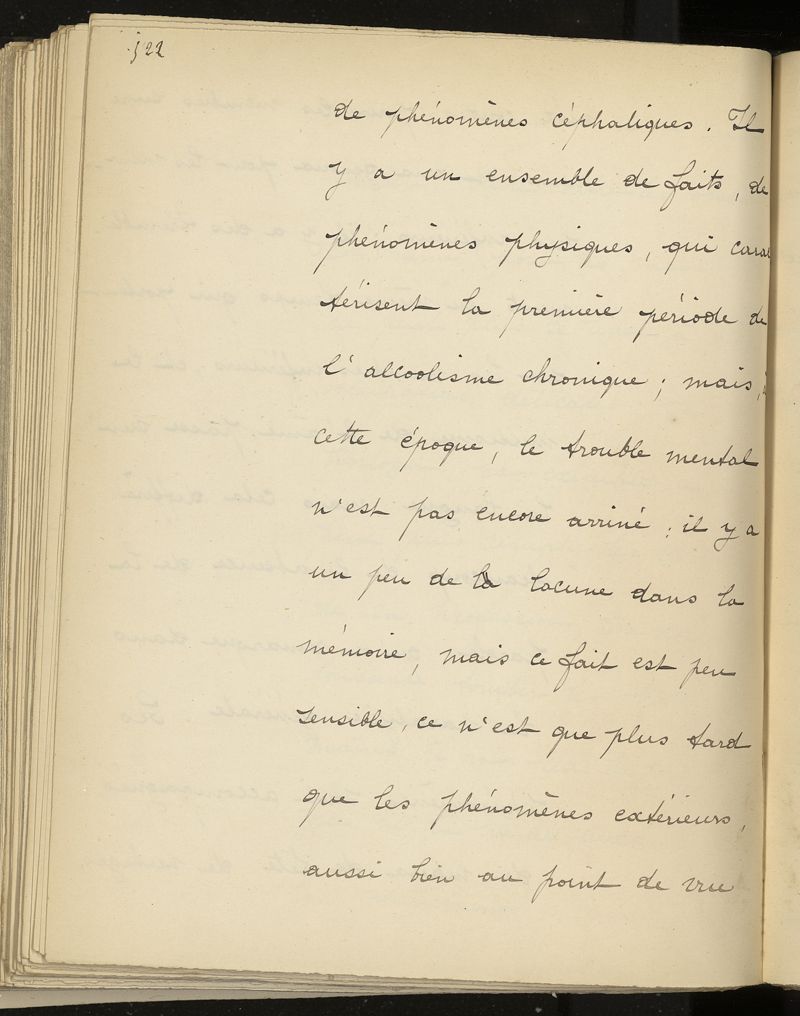 522
de phénomènes céphaliques. Il
y a un ensemble de faits, de
phénomènes physiques, qui carac
térisent la première période de
l'alcoolisme chronique ; mais, à
cette époque, le trouble mental
n'est pas encore arrivé ; il y a
un peu de la lacune dans la
mémoire, mais ce fait est peu
sensible, ce n'est que plus tard
que les phénomènes extérieurs,
aussi bien au point de vue